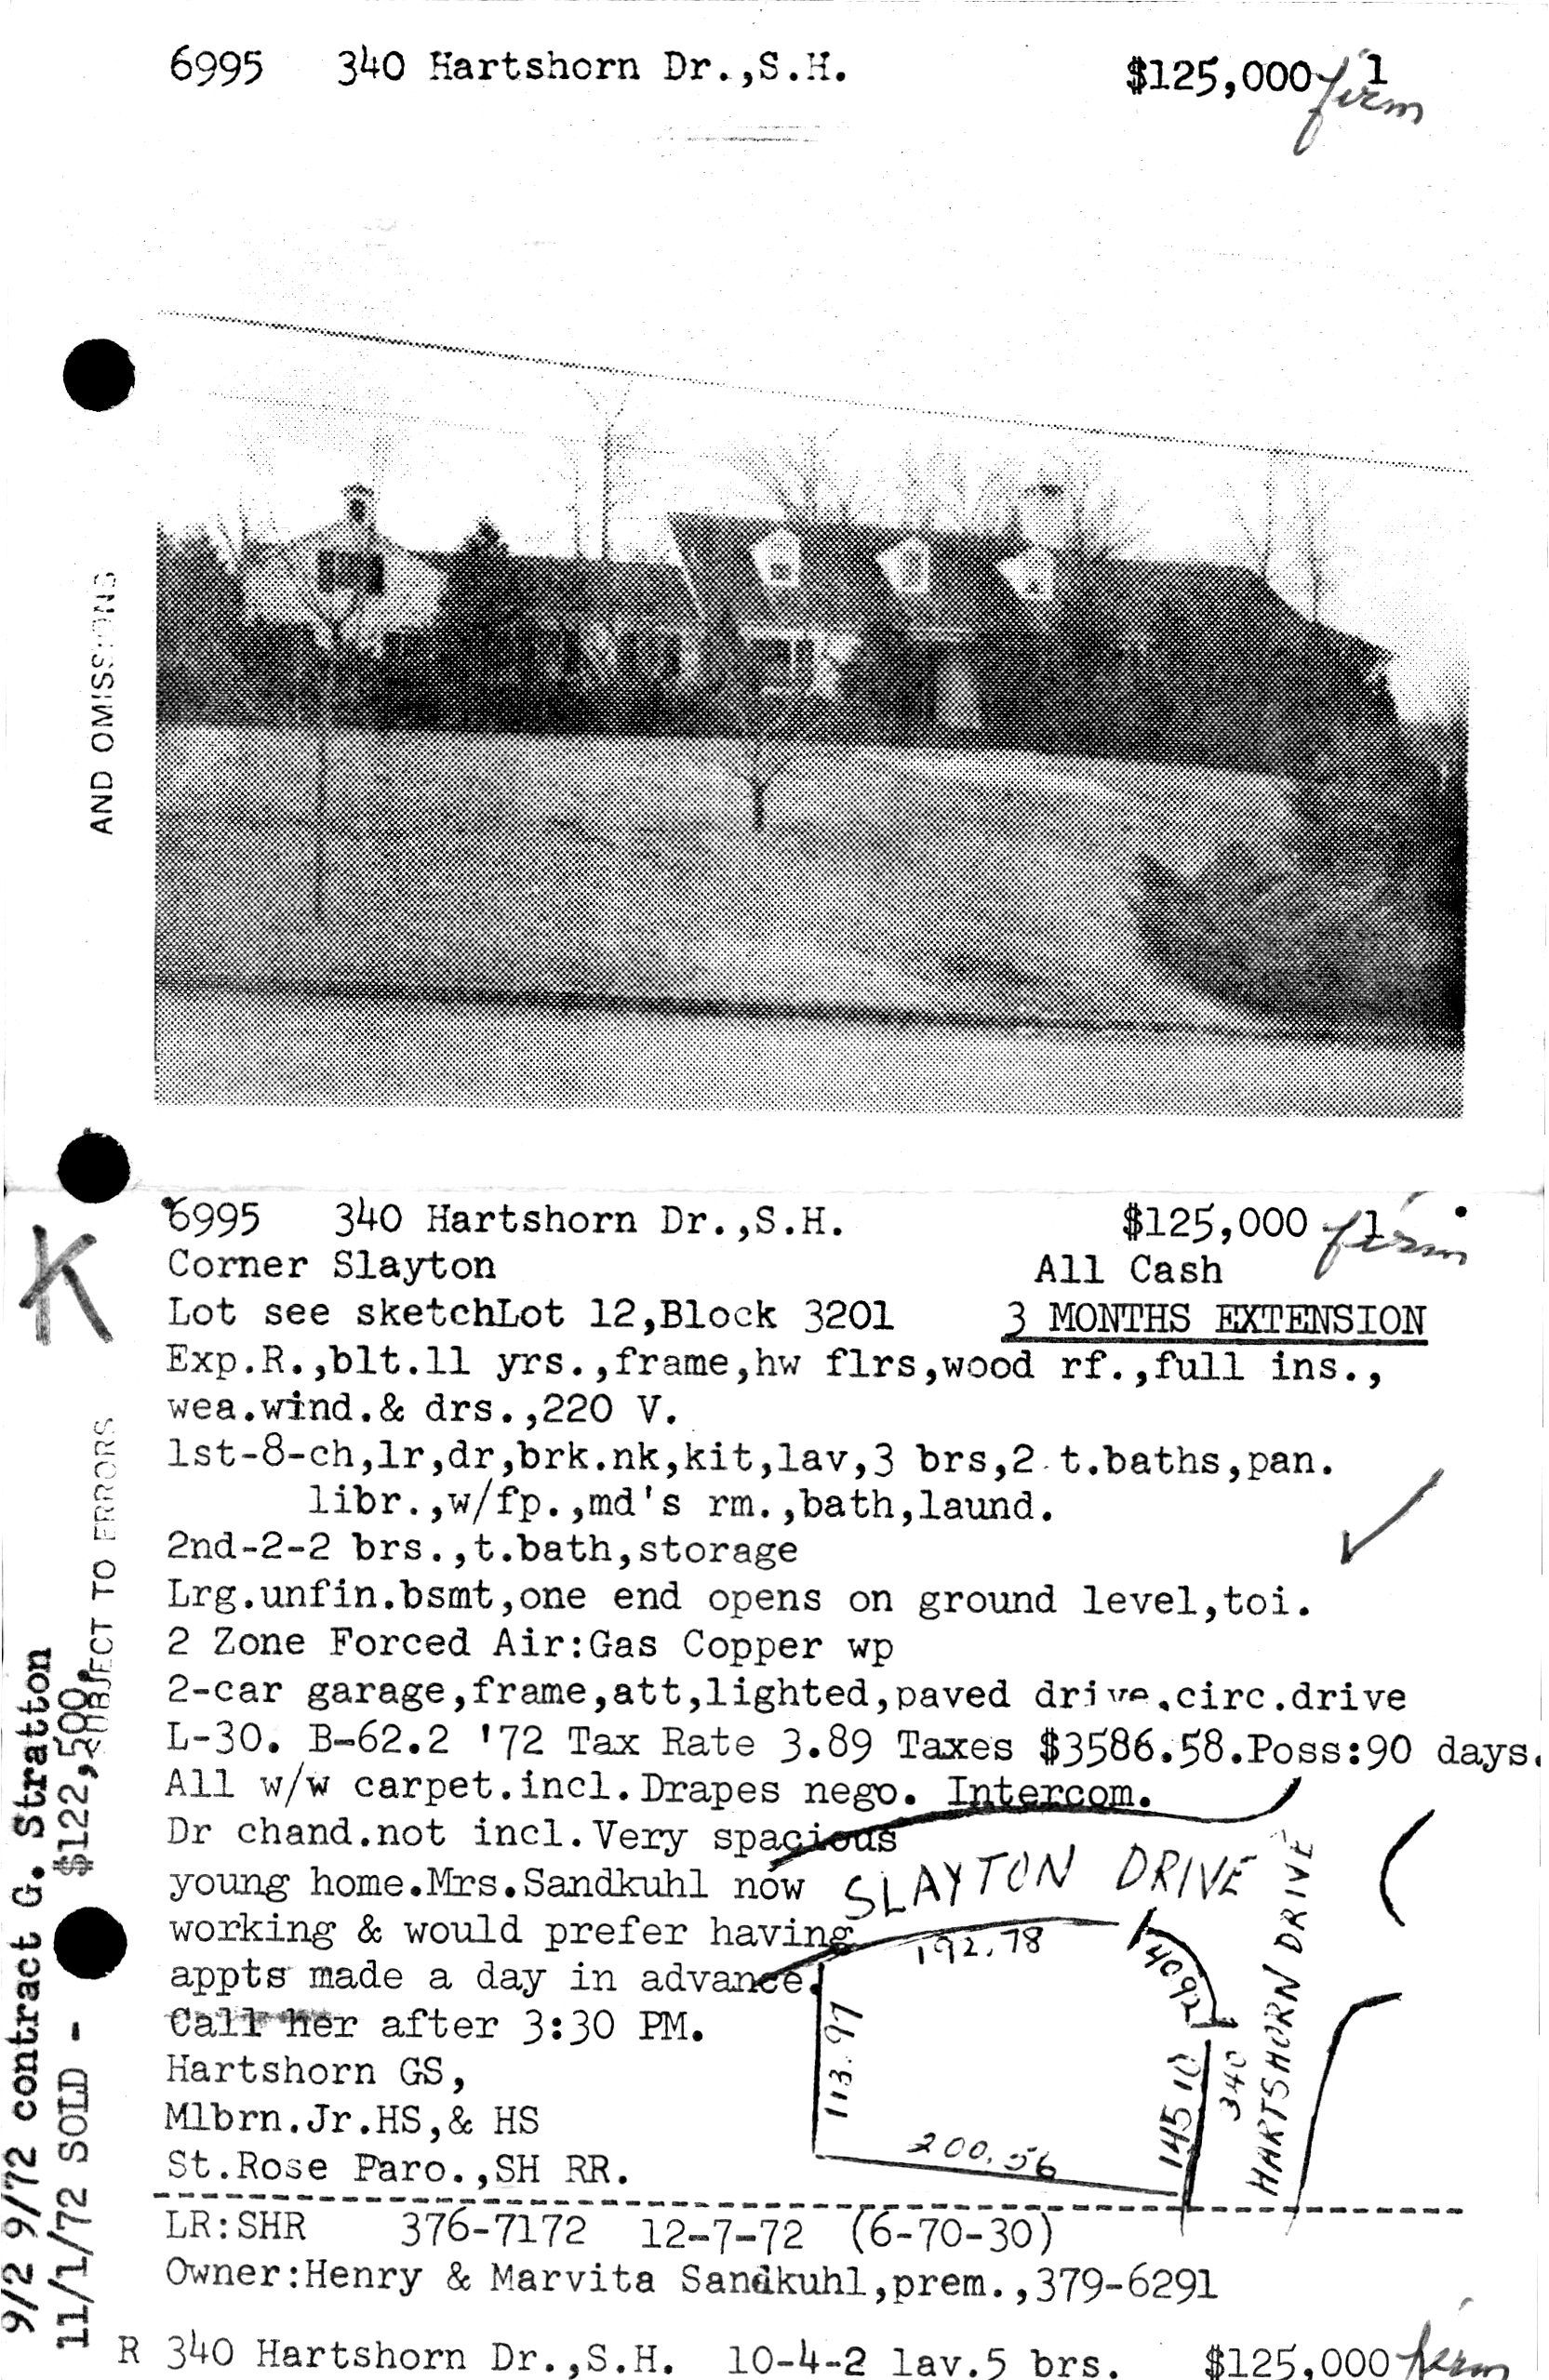 6995 340 Hartshorn Dr.,S.H. $125,000 firm
AND OMISSIONS
6995 340 Hartshorn Dr.,S.H. $125,000 firm
K
Corner Slayton All Cash
Lot see sketchLot 12,Block 3201 3 MONTHS EXTENSION
Exp.R.,blt.11 yrs.,frame,hw flrs,wood rf.,full ins.,
wea.wind.& drs.,220 V.
1st-8-ch,lr,dr,brk.nk,kit,lav,3 brs,2 t.baths,pan.
libr.,w/fp.,md's rm.,bath,laund.
2nd-2-2 brs.,t.bath,storage
Lrg.unfin.bsmt,one end opens on ground level,toi.
2 Zone Forced Air:Gas Copper wp
2-car garage,frame,att,lighted,paved drive,circ.drive
L-30. B-62.2 '72 Tax Rate 3.89 Taxes $3586.58.Poss:90 days.
All w/w carpet.incl.Drapes nego. Intercom.
Dr chand.not incl.Very spacious
young home.Mrs.Sandkuhl now
working & would prefer having
appts made a day in advance.
Call her after 3:30 PM.
Hartshorn GS,
Mlbrn.Jr.HS,& HS
St.Rose Paro.,SH RR.
SLAYTON DRIVE
192.78
4092
113.97
145 10
340
HARTSHORN DRIVE
200.56
LR:SHR 376-7172 12-7-72 (6-70-30)
Owner:Henry & Marvita Sandkuhl,prem.,379-6291
R 340 Hartshorn Dr.,S.H. 10-4-2 lav.5 brs. $125,000 firm
SUBJECT TO ERRORS
9/2 9/72 contract G. Stratton
11/1/72 SOLD - $122,500.